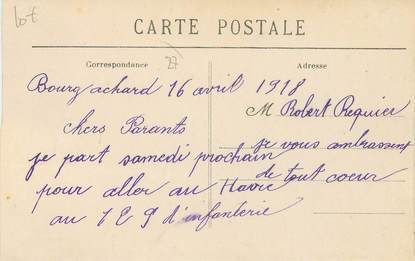 lot
CARTE POSTALE
Correspondance
27
Adresse
Bourg achard 16 avril 1918
M Robert Requier
chers Parants
je part samedi prochain
pour aller au Havre
au 129 d'infanterie
je vous ambrassent
de tout coeur